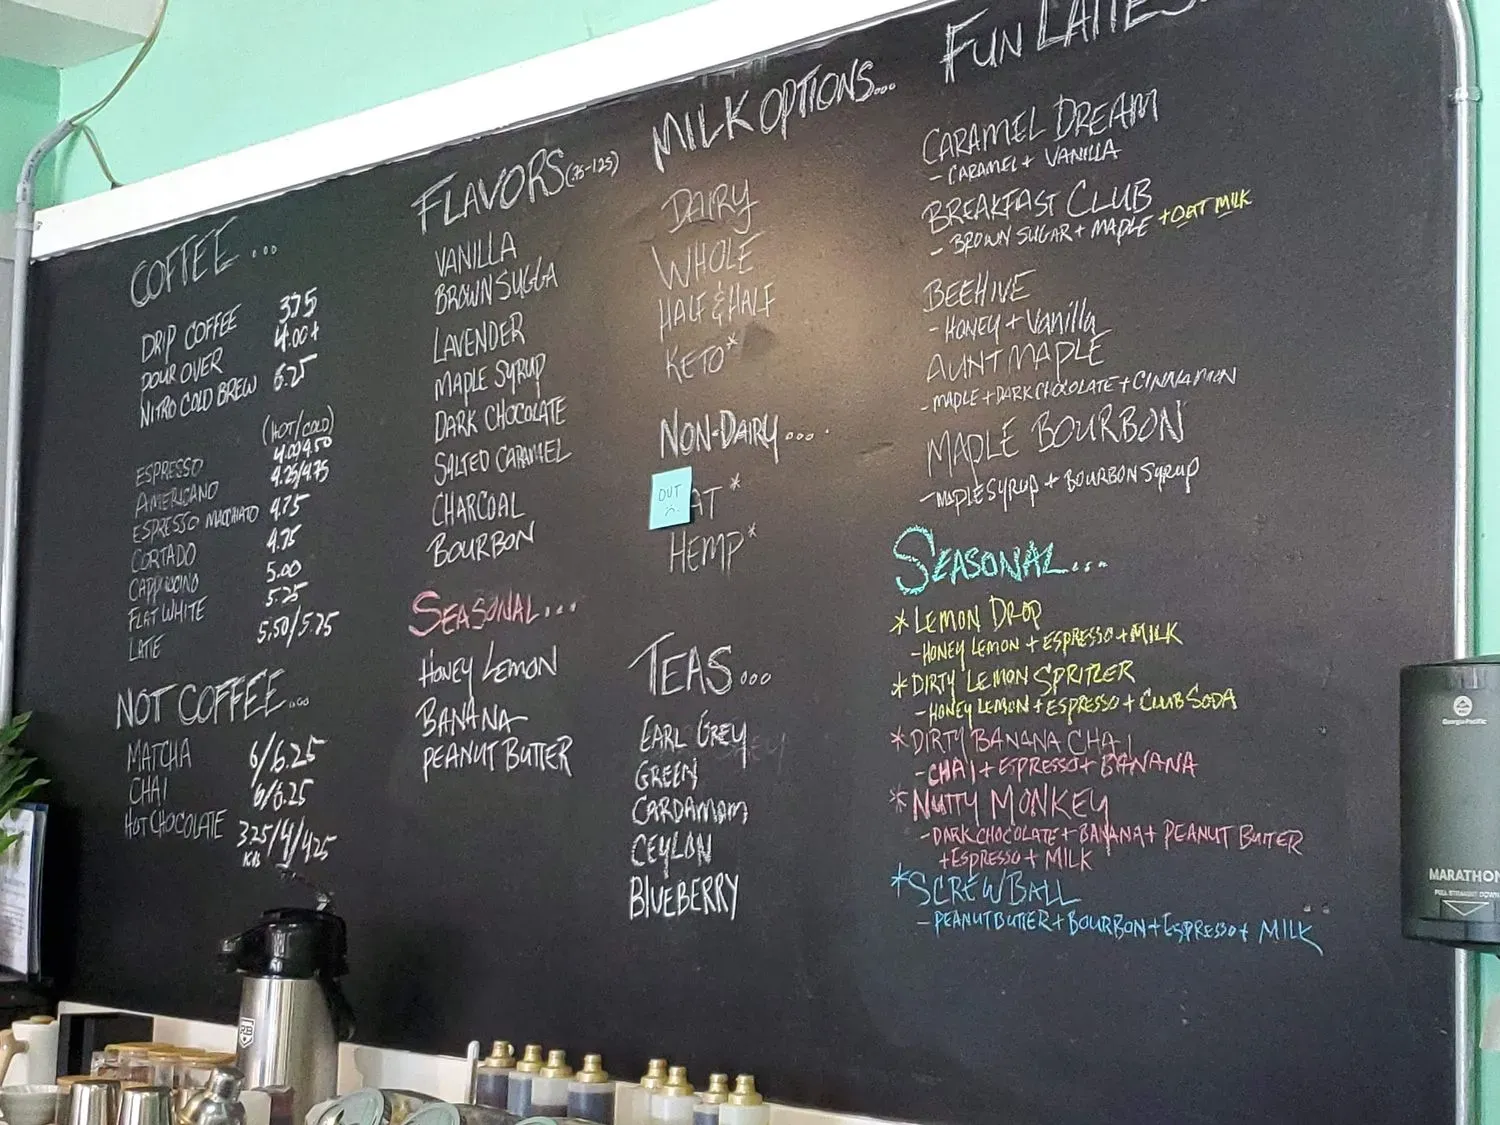 COFFEE...
DRIP COFFEE 3.75
POUR OVER 4.00+
NITRO COLD BREW 6.25
(HOT/COLD)
ESPRESSO 4.00/4.50
AMERICANO 4.25/4.75
ESPRESSO MACCHIATO 4.75
CORTADO 4.75
CAPPUCCINO 5.00
FLAT WHITE 5.25
LATTE 5.50/5.75
NOT COFFEE...
MATCHA 6/6.25
CHAI 6/6.25
HOT CHOCOLATE 3.25/4/4.25
KID
FLAVORS (.75-1.25)
VANILLA
BROWN SUGGA
LAVENDER
MAPLE SYRUP
DARK CHOCOLATE
SALTED CARAMEL
CHARCOAL
BOURBON
SEASONAL...
HONEY LEMON
BANANA
PEANUT BUTTER
MILK OPTIONS...
DAIRY
WHOLE
HALF & HALF
KETO*
NON-DAIRY...
OUT
:(
AT*
HEMP*
TEAS...
EARL GREY
GREEN
CARDAMOM
CEYLON
BLUEBERRY
FUN LATTES...
CARAMEL DREAM
- CARAMEL + VANILLA
BREAKFAST CLUB
- BROWN SUGAR + MAPLE + OAT MILK
BEEHIVE
- HONEY + Vanilla
AUNT MAPLE
- MAPLE + DARK CHOCOLATE + CINNAMON
MAPLE BOURBON
- MAPLE SYRUP + BOURBON SYRUP
SEASONAL...
* LEMON DROP
- HONEY LEMON + ESPRESSO + MILK
* DIRTY LEMON SPRITZER
- HONEY LEMON + ESPRESSO + CLUB SODA
* DIRTY BANANA CHAI
- CHAI + ESPRESSO + BANANA
* NUTTY MONKEY
- DARK CHOCOLATE + BANANA + PEANUT BUTTER
+ ESPRESSO + MILK
* SCREWBALL
- PEANUT BUTTER + BOURBON + ESPRESSO + MILK
Georgia-Pacific
MARATHON
PULL STRAIGHT DOWN
RB